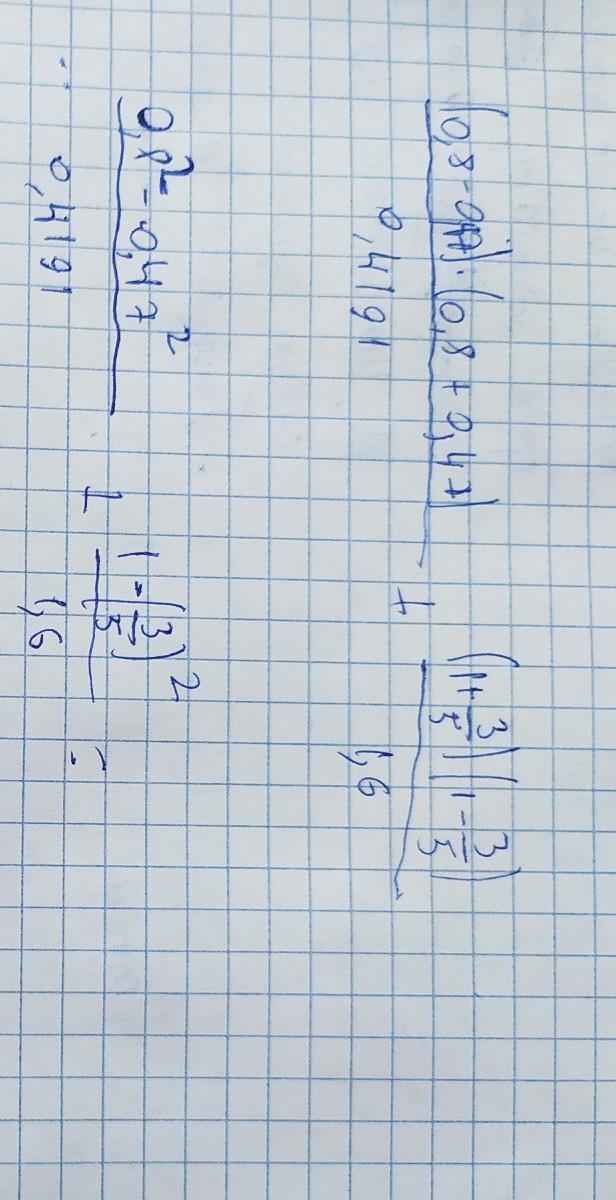 (0,8-0,47)·(0,8+0,47) / 0,4191 + (1+3/5)(1-3/5) / 1,6
0,8² - 0,47² / 0,4191 + 1-(3/5)² / 1,6 =